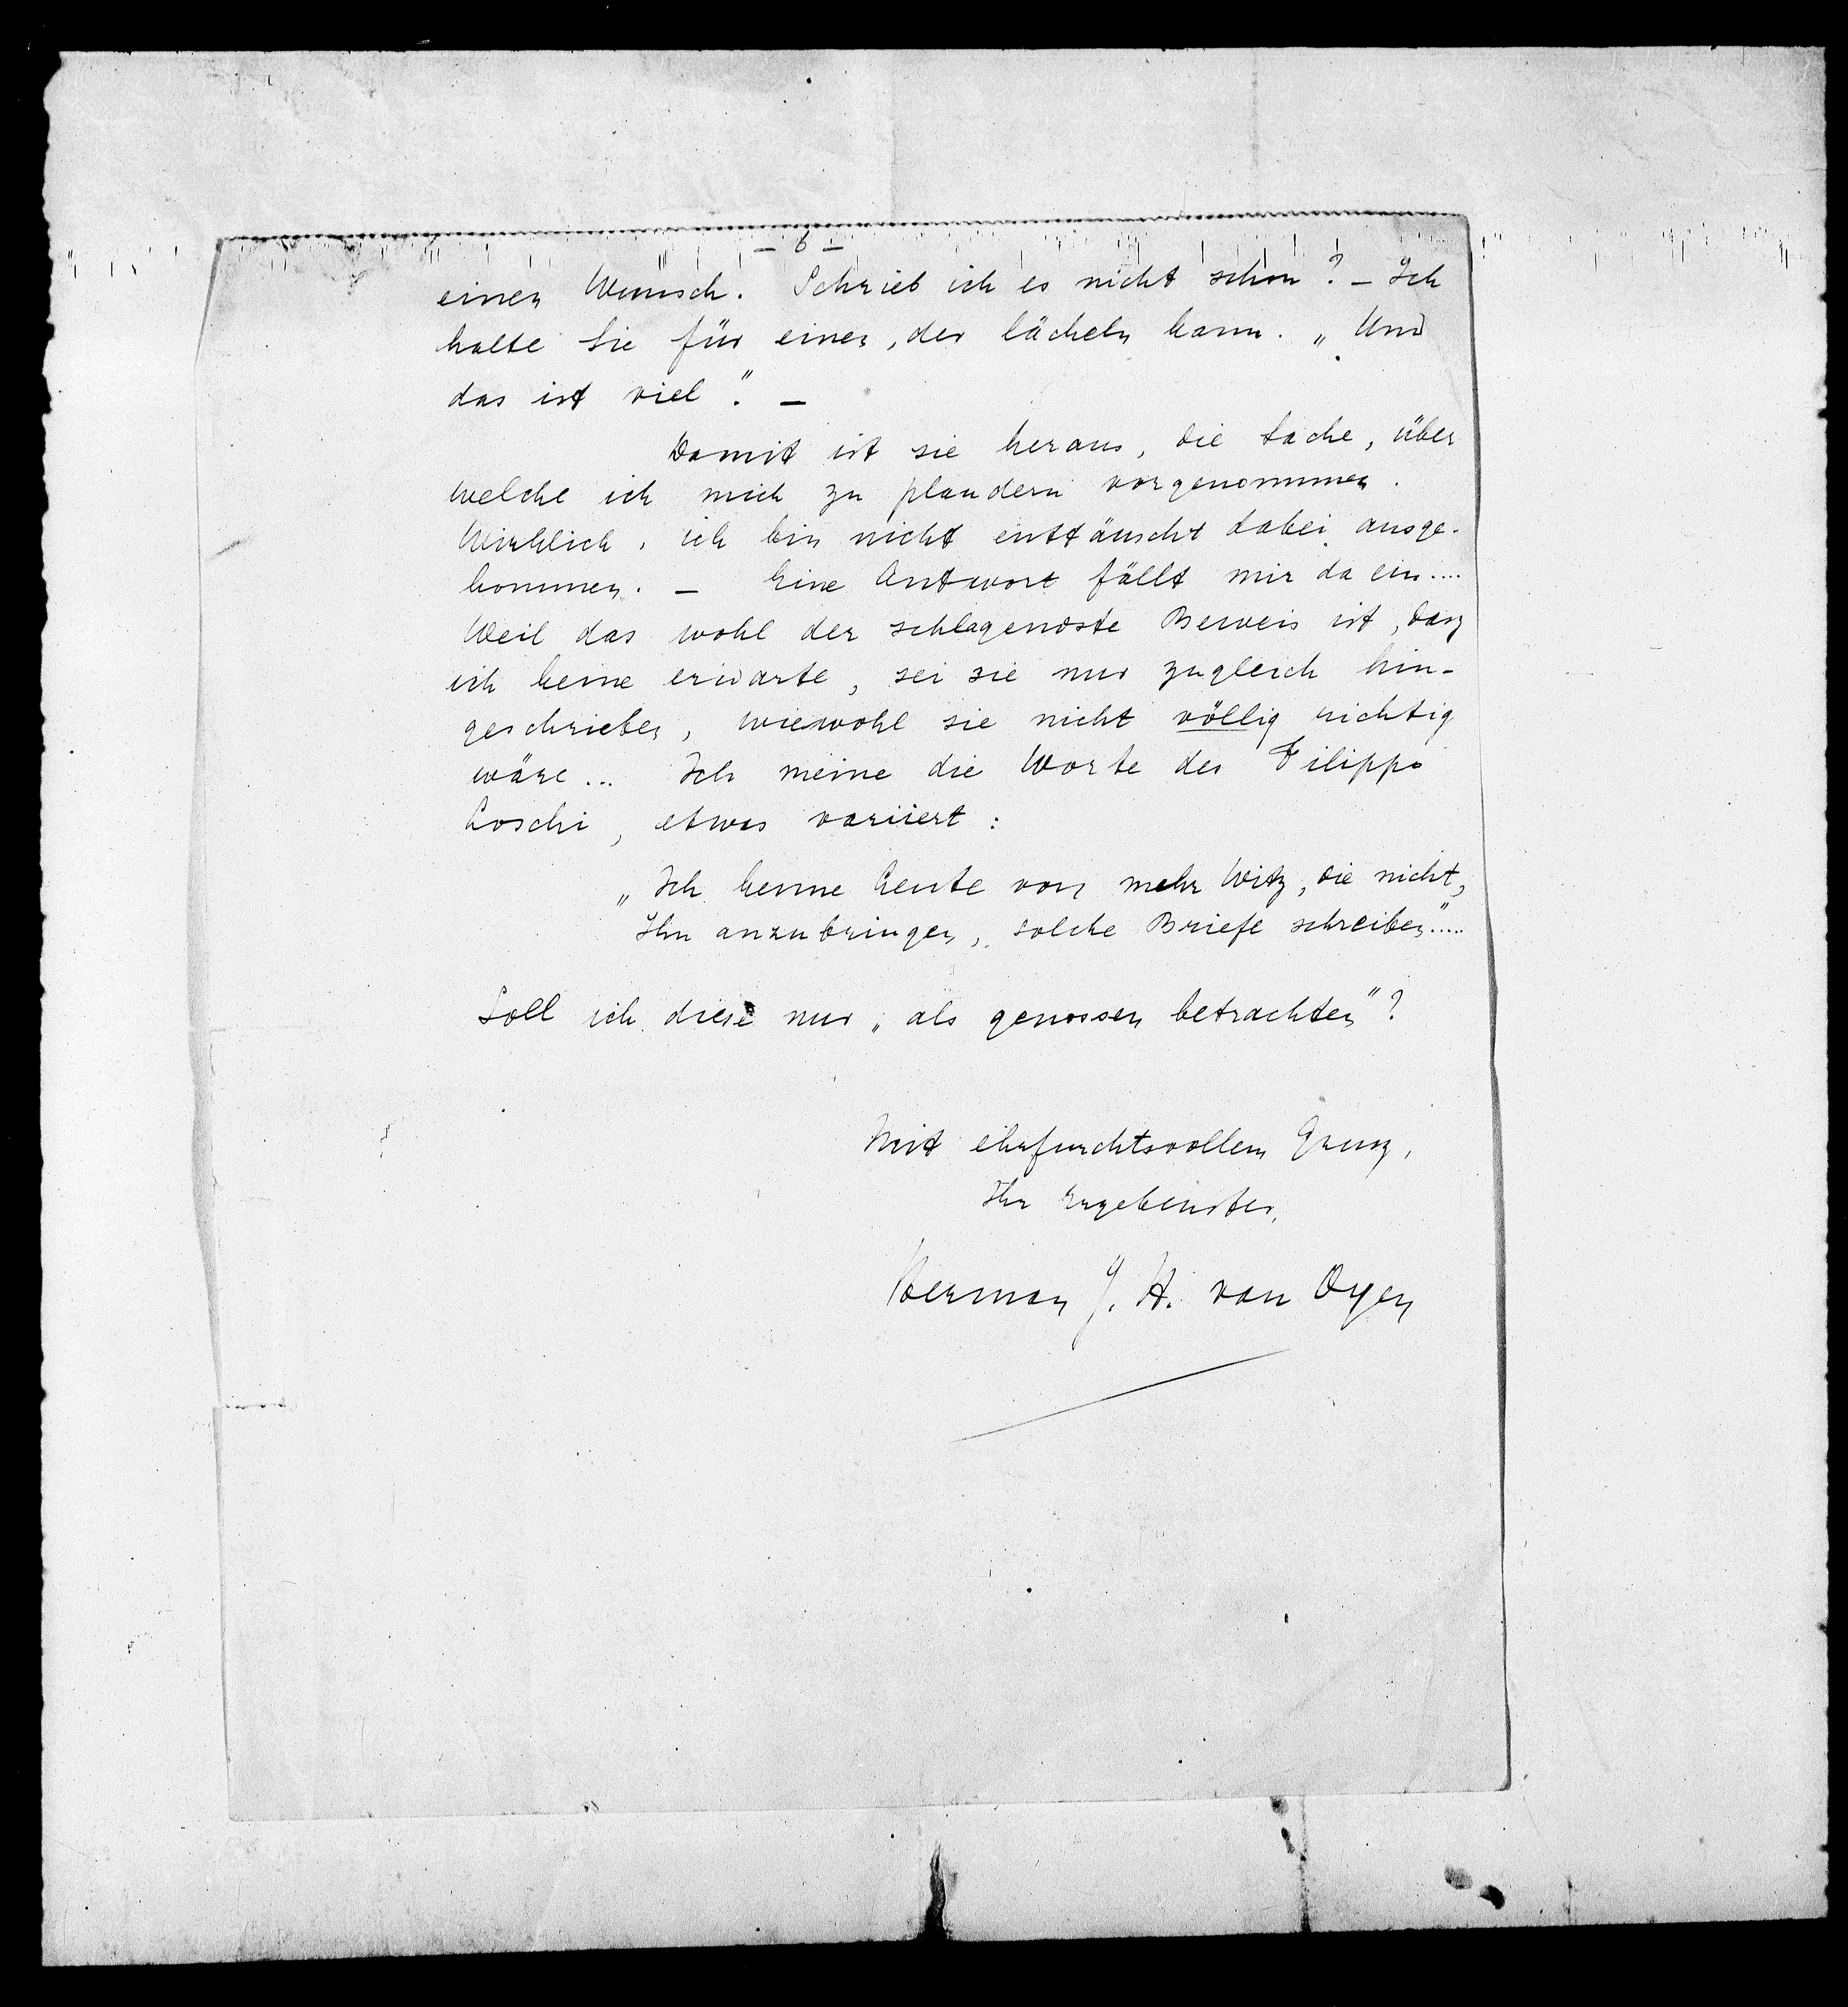 – 6 –
einen Wunsch. Schrieb ich es nicht schon? – Ich
halte Sie für einen, der lächeln kann. „Und
das ist viel". –
Damit ist sie heraus, die Sache, über
welche ich mich zu plaudern vorgenommen.
Wirklich, ich bin nicht enttäuscht dabei ausge-
kommen. – Eine Antwort fällt mir da ein....
Weil das wohl der schlagendste Beweis ist, dasz
ich keine erwarte, sei sie nur zugleich hin-
geschrieben, wiewohl sie nicht völlig richtig
wäre... Ich meine die Worte des Filippo
Loschi, etwas variiert:
„Ich kenne Leute von mehr Witz, die nicht,
Ihn anzubringen, solche Briefe schreiben"....
Soll ich diese nur „als genossen betrachten"?
Mit ehrfurchtsvollem Grusz,
Ihr Ergebenster,
Herman J. H. van Oyen